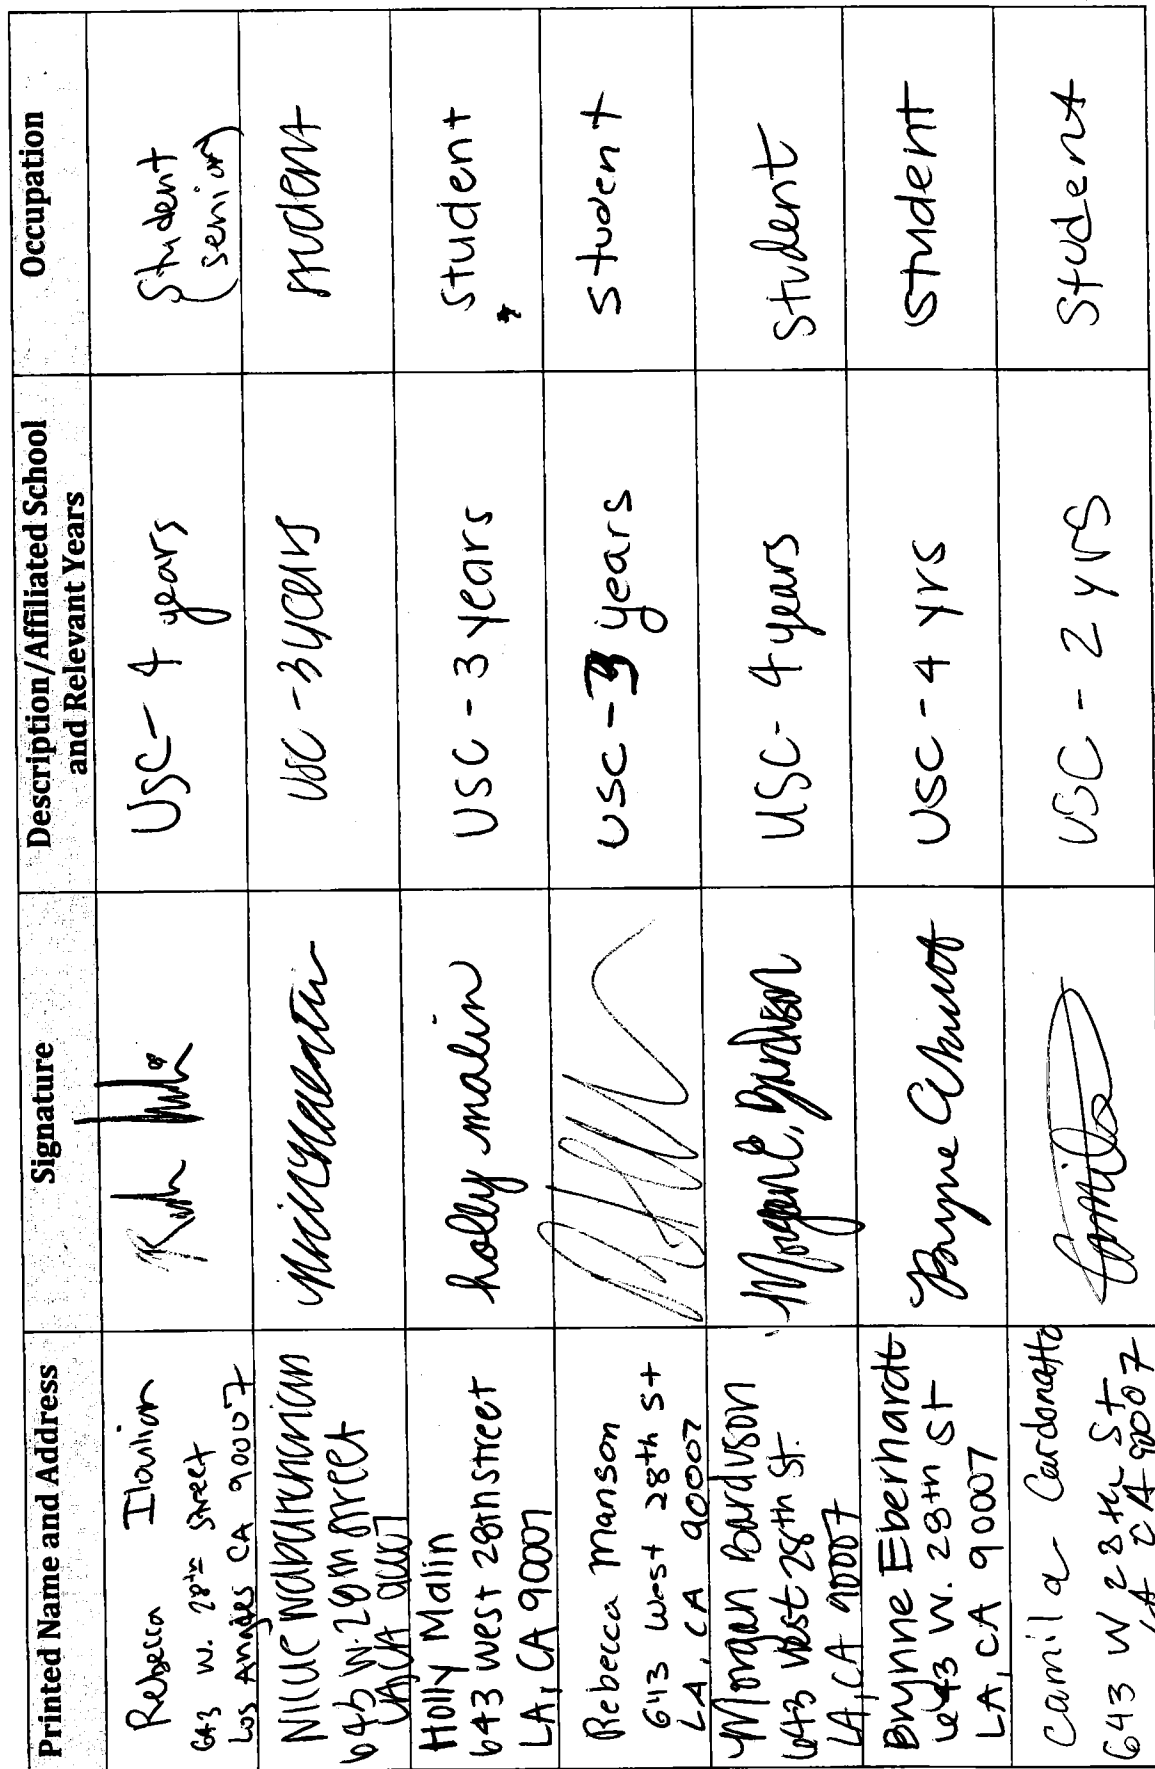 Printed Name and Address
Signature
Description/Affiliated School
and Relevant Years
Occupation
Rebecca Iloulian
643 W. 28th Street
Los Angeles CA 90007
USC - 4 years
Student
(senior)
643 W. 28th street
LA, CA 90007
USC - 3 years
student
Holly Malin
643 West 28th street
LA, CA 90007
holly malin
USC - 3 years
Student
Rebecca Manson
643 West 28th St
LA, CA 90007
USC - 3 years
Student
Morgan Bardwson
643 West 28th St.
LA, CA 90007
USC - 4 years
Student
Brynne Eberhardt
643 W. 28th St
LA, CA 90007
USC - 4 yrs
Student
Camila Cardonatto
643 W 28th St
LA CA 90007
Camila
USC - 2 yrs
Student